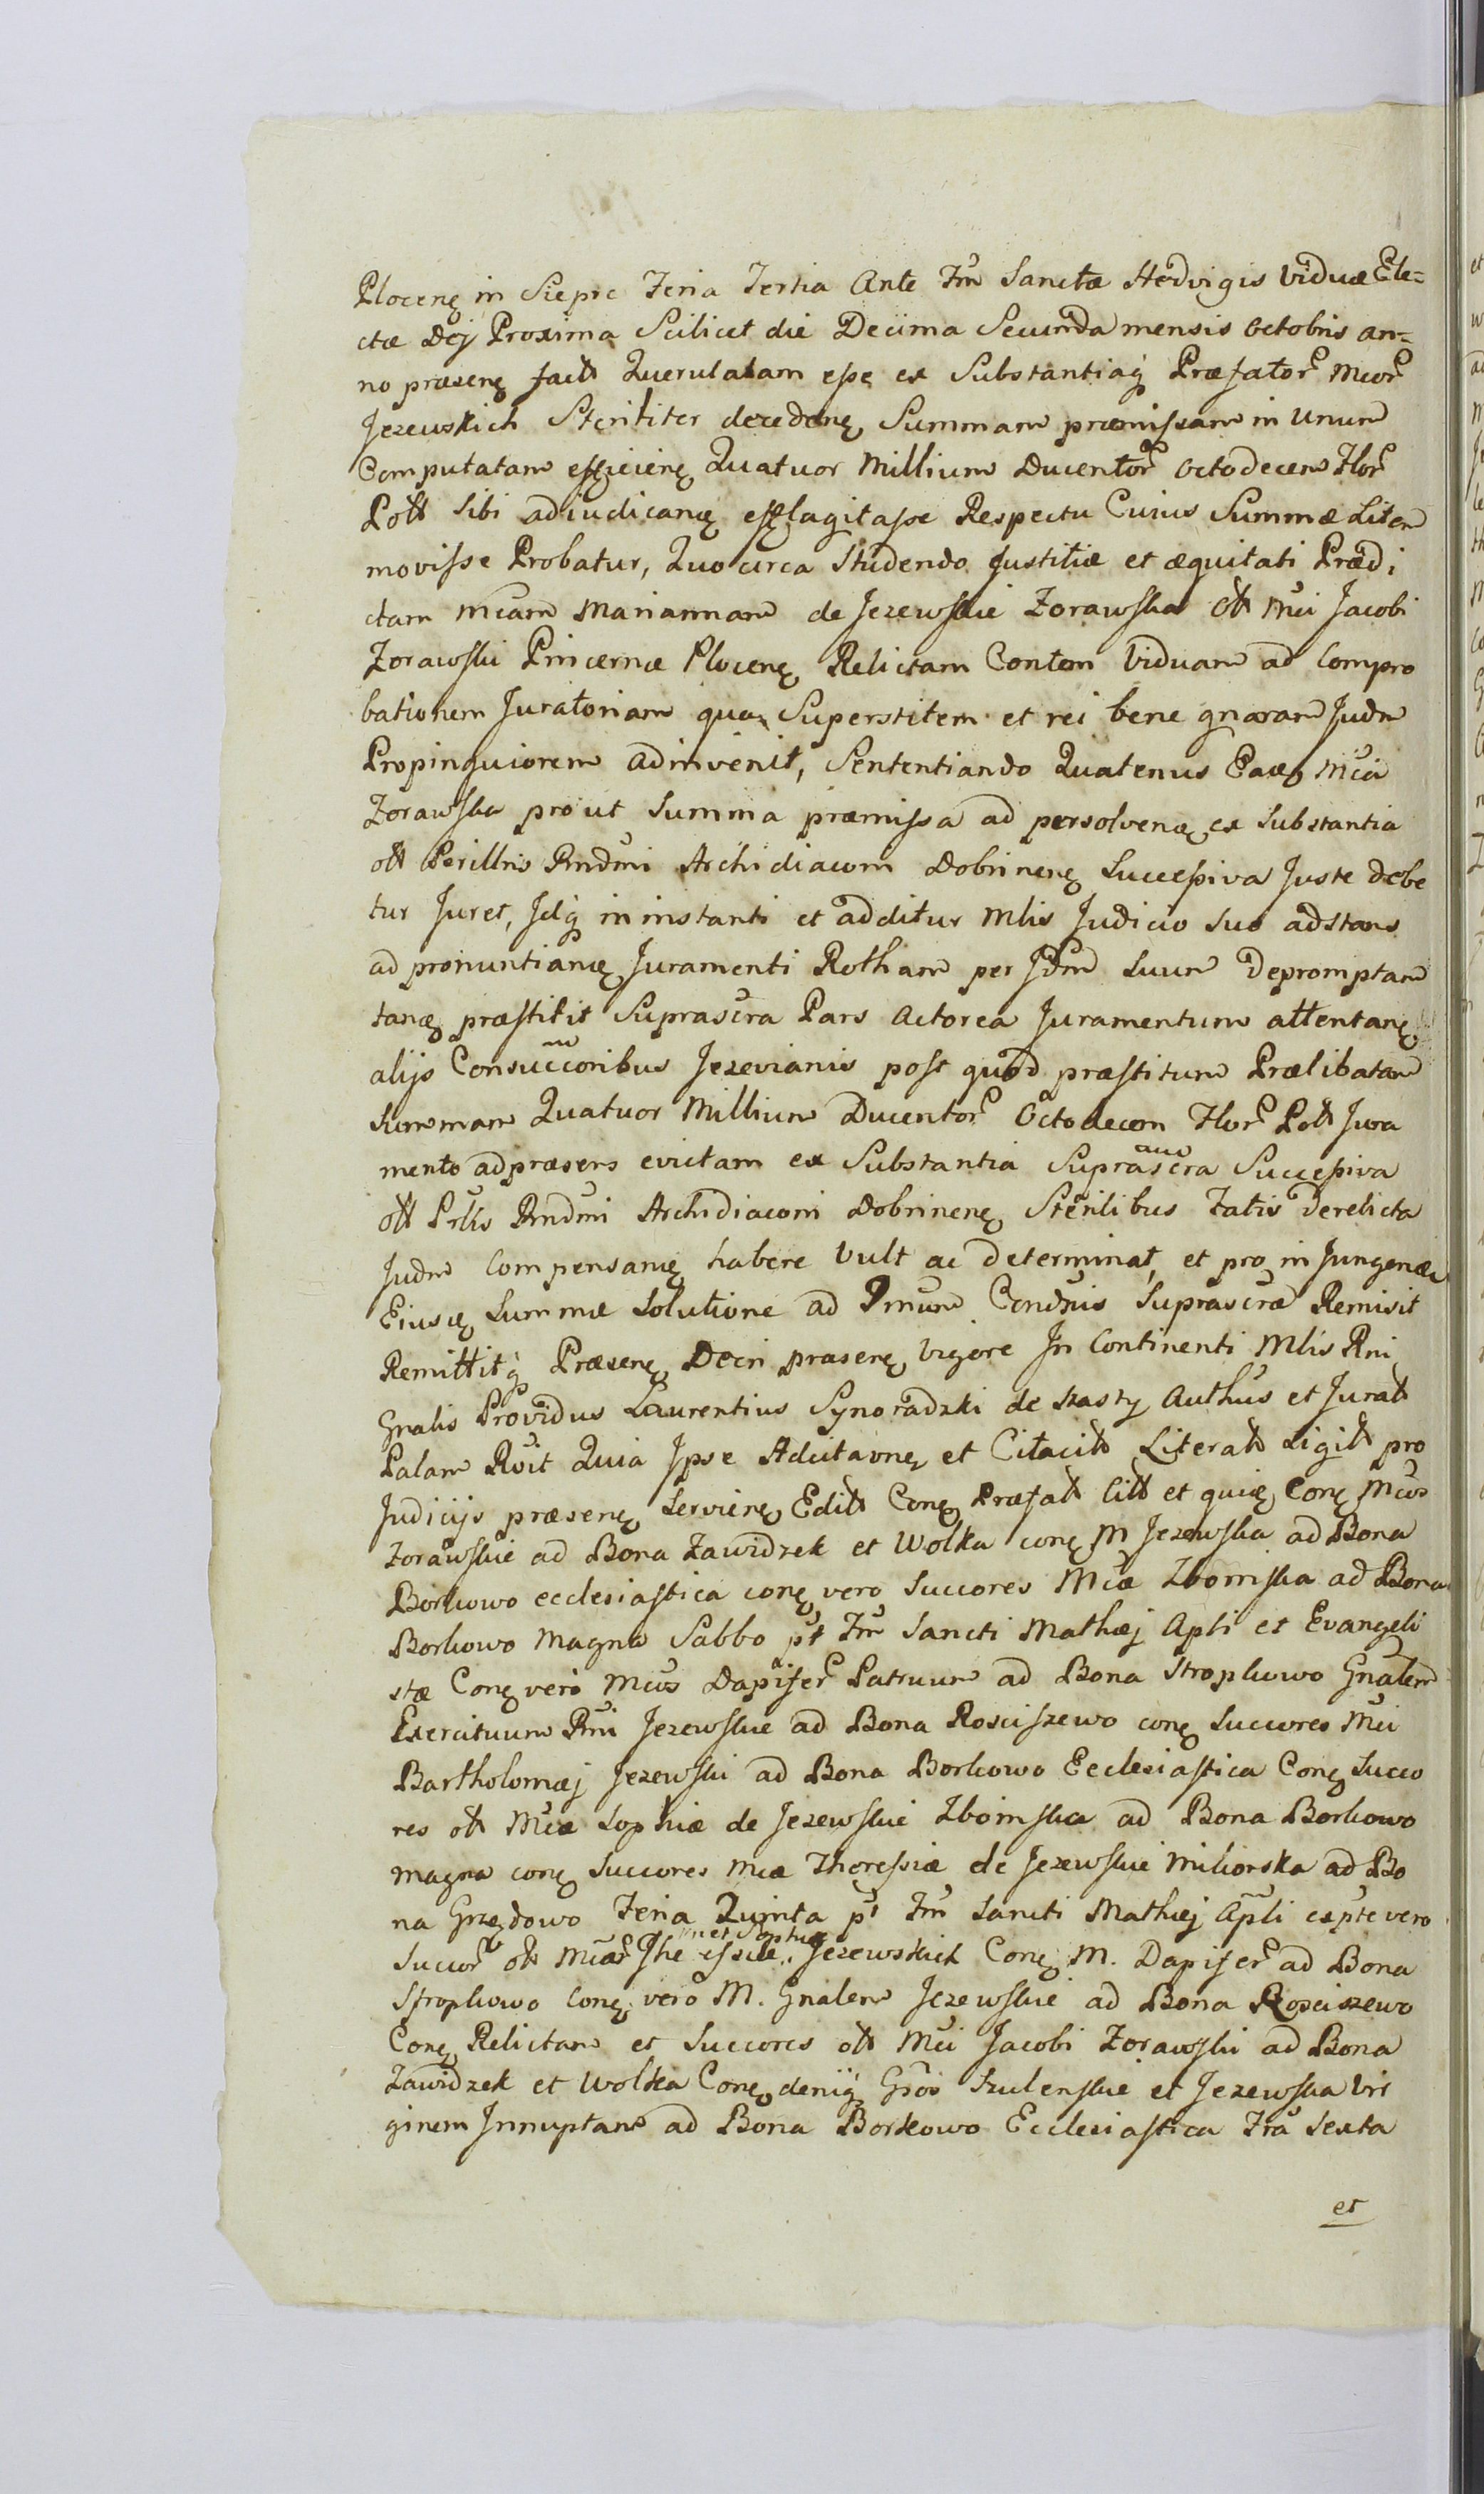 Plocenę in Sieprc Feria Tertia Ante Fm̃ Sanctæ Hedvigis Viduæ Ele=
ctæ Dej Proxima Scilicet die Decima Secunda mensis Octobris an=
no præsenę fact Querulatam eße ex Substantiaq́ Præfator Mcor
Jezewskich Steriliter decedenę Summam præmißam in Unum
Computatam efficienę Quatuor Millium Ducentor Octodecem Flor
Poll Sibi adiudicanę efflagitaße Respectu Cuius Summæ Litem
movisse Probatur, Quo circa Studendo Justitiæ et æquitati Prædi
ctam Mcam Mariannam de Jezewskie Zorawska oll Mci Jacobi
Zorawski Pincernæ Plocenę Relictam Contem Viduam ad Compro
bationem Juratoriam qua Superstitem et rei bene gnaram Judm
Propinquiorem adinvenit, Sententiando Quatenus Eadę Mca
Zorawska pro ut Summa præmißa ad persolvenę ex Substantia
oll Perillris Rndmi Archidiaconi Dobrinenę Sucepiva Juste debe
tur Juret, Idq́ in instanti et additur Mlis Judicio Suo adstans
ad pronuntianę Juramenti Rotham per Jdm Suum Depromptam
tanę præstitit Suprascra Pars Actorea Juramentum attentanę
alijs Consuccoribus Jezevianis post quod præstitum Prælibatam
Summam Quatuor Millium Ducentor Octodecem Flor Poll Jura
mento adpræsens evictam ex Substantia Suprascra Succeßiva
oll Prlis Rndmi Archidiaconi Dobrinenę Sterilibus Fatis Derelicta
Judm Compensanę habere Vult ac Determinat, et pro in Jungenda
Eiusę Summæ Solutione ad Pmum Condnis Suprascræ Remisit
Remittitq́ Præsenę Decri præsenę Vigore In Continenti Mlis Rni
Gnalis Providus Laurentius Synoradzki de Szasty Authus et Jurat
Palam Rvit Quia Ipse Adcitavnę et Citacit Literat Ligit pro
Judicijs præsenę Servienę Edit Conę Præfat Citt et quidę Conę Mcos
Zorawskie ad Bona Zawidzek et Wolka conę M Jezewska ad Bona
Borkowo ecclesiastica conę vero Succores Mcæ Zboinska ad Bona
Borkowo Magna Sabbo pt Fm Sancti Mathæj Apli et Evangeli
stæ Conę vero Mcos Dapifer Patruum ad Bona Stropkowo Gnalem
Exercituum Rni Jezewskie ad Bona Rosciszewo conę Succores Mci
Bartholomæj Jezewski ad Bona Borkowo Ecclesiastica Conę Succo
res oll Mcæ Sophiæ de Jezewskie Zboinska ad Bona Borkowo
magna conę Succores Mcæ Theressiæ de Jezewskie Miliorska ad Bo
na Grzędowo Feria Quinta pt Fm Sancti Mathæj Apli expte vero
Succor oll Mcar The essiæ met Sophiæ Jezewskich Conę M. Dapifer ad Bona
Stropkowo Conę vero M. Gnalem Jezewskie ad Bona Rosciszewo
Conę Relictam et Succores oll Mci Jacobi Zorawski ad Bona
Zawidzek et Wolka Conę deniq́ Gsos Szulenskie et Jezewska Vir
ginem Innuptam ad Bona Borkowo Ecclesiastica Fra Sexta
et